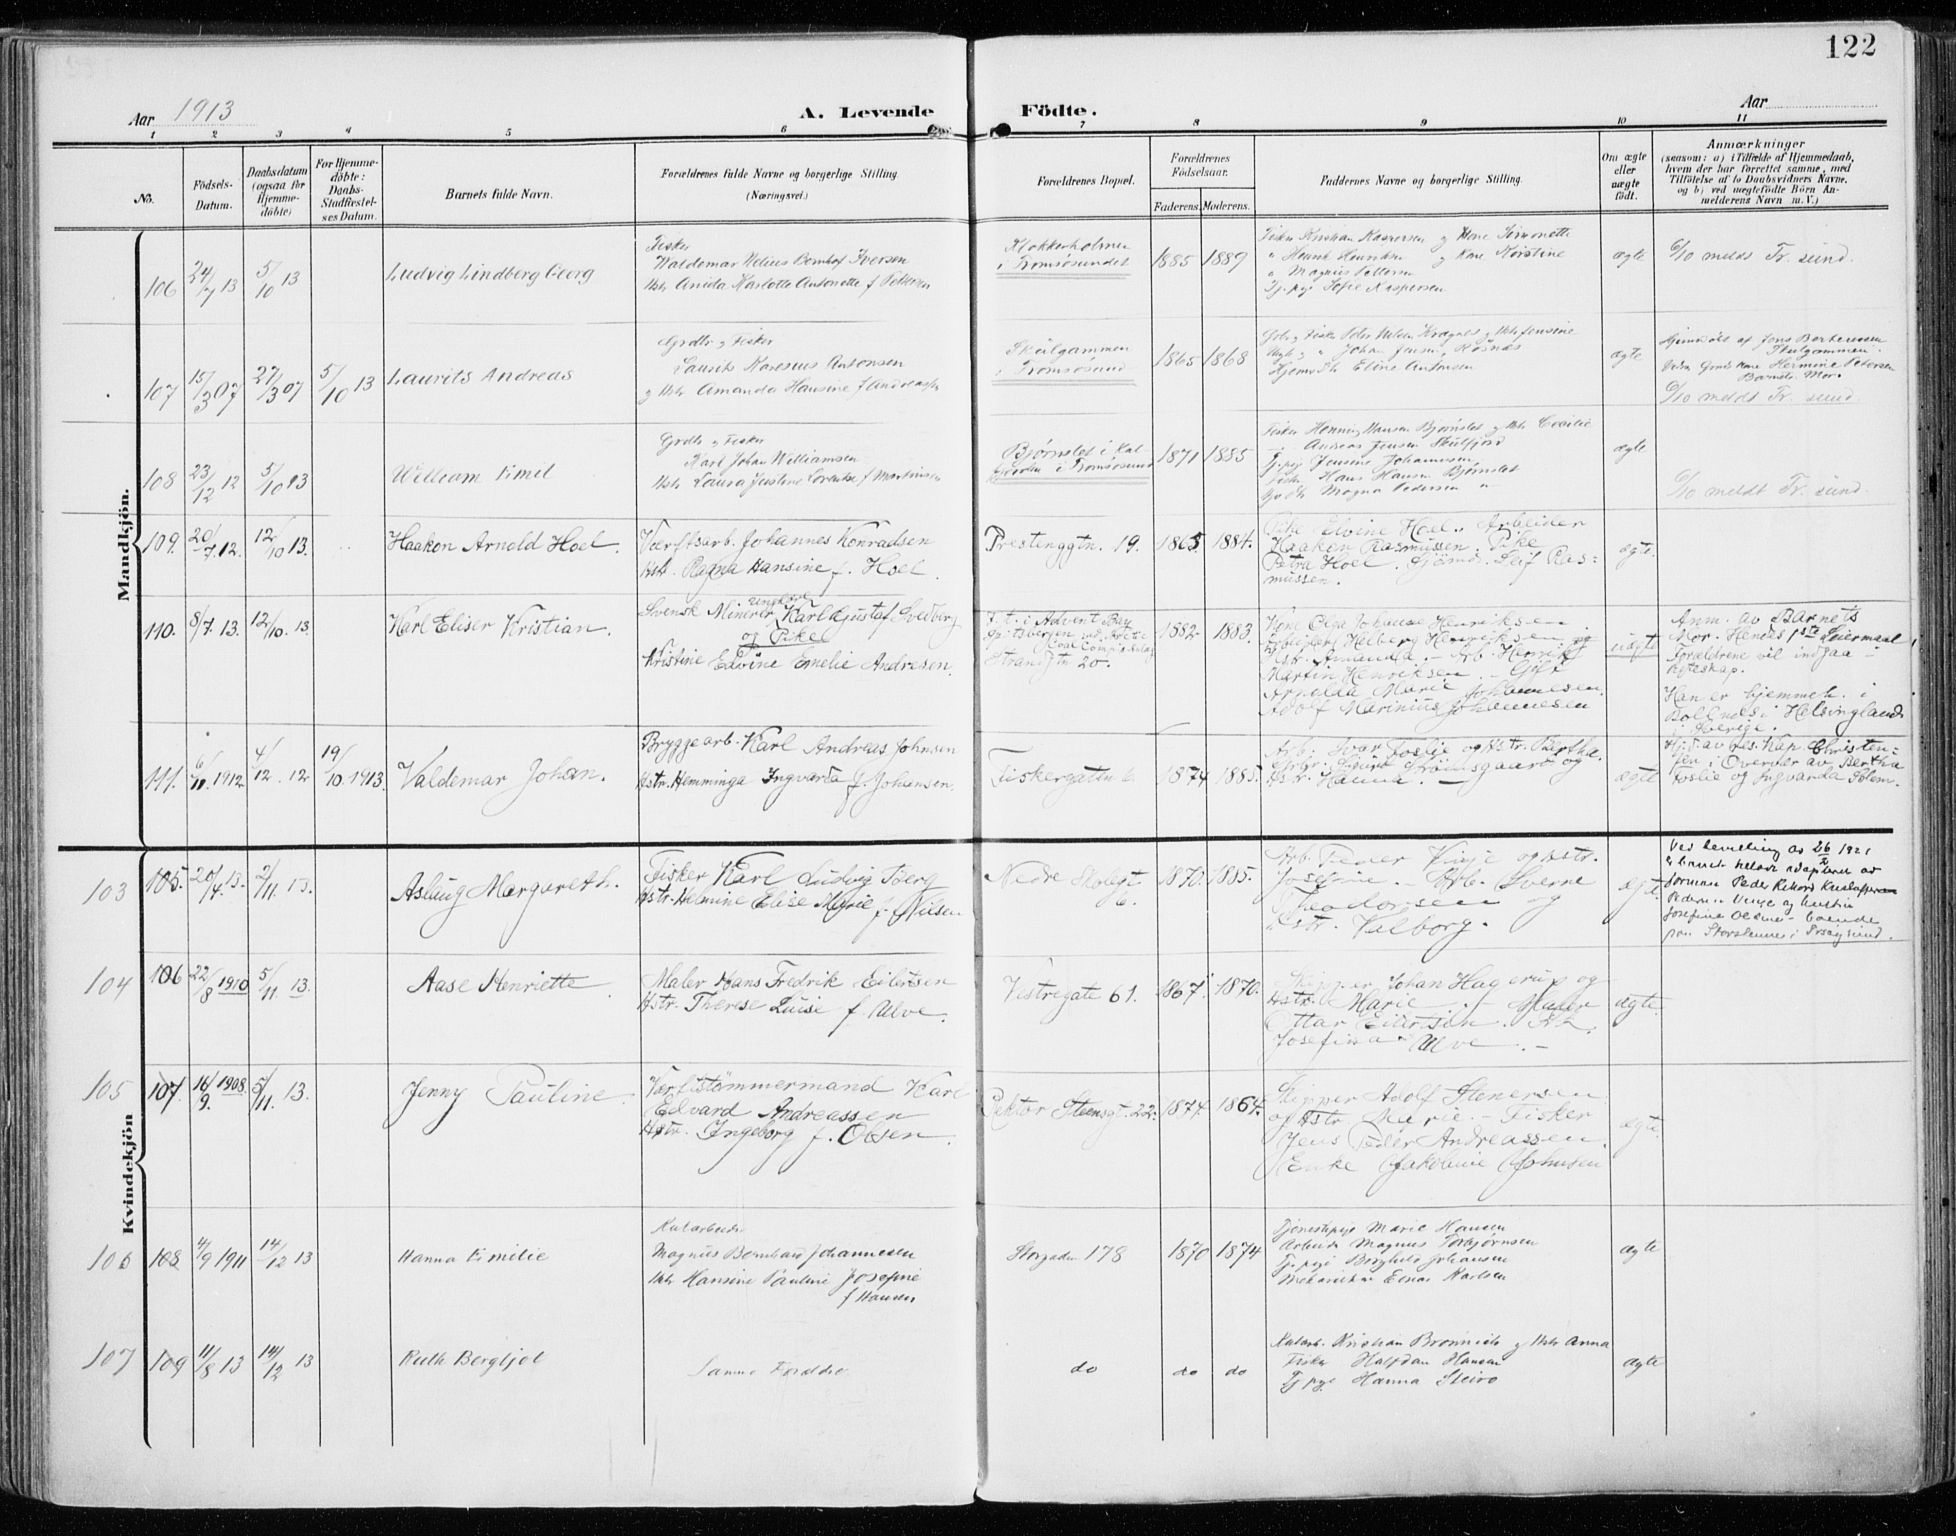 122
Aar 1913
A. Levende Födte.
Aar
1 2 3 4 5 6 7 8 9 10 11
No.
Födsels-Datum.
Daabsdatum (ogsaa for Hjemme-döbte)
For Hjemme-döbte: Daabs-Stadfæstel-ses Datum.
Barnets fulde Navn.
Forældrenes fulde Navne og borgerlige Stilling. (Næringsvei.)
Forældrenes Bopæl.
Forældrenes Födselsaar.
Faderens. Moderens.
Faddernes Navne og borgerlige Stilling.
Om ægte eller uægte födt.
Anmærkninger
(saasom: a) i Tilfælde af Hjemmedaab,
hvem der har forrettet samme, med
Tilföielse af to Daabsvidners Navne,
og b) ved uægtefödte Börn An-
melderens Navn m. V.)
Mandkjön.
106 24/7 13 5/10 13 Ludvig Lindberg Georg
Fisker
Waldemar Nelius Bernhof Iversen
Hstr Anida Karlotte Antonette f Pettersen
Klokkerholmen
i Tromsøsundet
1885 1889
Fisker Kristian Kaspersen og Kone Simonette
" Henrik Henriksen og Kone Kirstine
" Magnus Pettersen
Tj. pige Sofie Kaspersen
ægte
6/10 meldt Tr. sund.
107 15/3 07 27/3 07 5/10 13 Laurits Andreas
Grdbr og Fisker
Laurits Antonsen
og Hstr Amanda Hansine f Andreassen
Skulgammen
i Tromsøsund
1865 1868
Johan Jensen, Røsnes
Eline Antonsen
ægte
Hjemmedøbt af Jens Berteussen
Skulgammen.
Hermine Petersen
Barnets Mor.
6/10 meldt Tr. sund.
108 23/12 12 5/10 13 William Emil
Grdbr og Fisker
Karl Johan Williamsen
Hstr Laura Justine Lovise f Martinsen
Bjørnslet i
i Tromsøsund
1871 1885
Fisker Henning Hansen Bjørnslet og Hstr Cecilie
Andreas Jensen Skulfjord
Tj. pige Jensine Johannesen
Fisker Hans Hansen Bjørnslet
Magna Pedersen "
ægte
6/10 meldt Tr. sund.
109. 20/7. 12. 12/10 13. Haakon Arnold Hoel.
Værftsarb. Johannes Konradsen
Hstr. Ragna Hansine f. Hoel.
Prestenggtn. 19. 1865. 1884.
Pike Elvine Hoel. Arbeider
Haakon Rasmussen. Pike
Petra Hoel. Sjömd. Leif Ras=
mussen.
ægte.
110. 8/7. 13. 12/10. 13. Karl Eliser Kristian.
ungkarl
Svensk Minerer Karl Gustaf Svedberg
og Pike
Kristine Edvine Emelie Andresen.
F. t. i Advent Bay
Spitsbergen ved Arctic
Coal Comp.
Strandgtn 20.
1882 1883.
Kone Olga Johanne Henriksen.
Arbeider Helberg Henriksen og
Hstr. Amanda. - Arb. Henrik
Martin Henriksen. - Gift
Arnolda Marie Johannesen.
Adolf Marinius Johannesen
uægte
Anm. av Barnets
Mor. Hendes 1ste Leiermaal
Forældrene vil indgaa
Egteskap.
Han er hjemmeh. i
Bollnes i Helsingland
i Sverige.
111. 6/11. 1912 4/12. 12 19/10. 1913. Valdemar Johan.
Bryggearb. Karl Andreas Johnsen
Hstr. Hemminga Ingvarda f. Johansen.
Fiskergaten 6 1874 1885.
Arb. Ivar Foslie og Hstr. Bertha.
Strömsgaard og
Hstr. Hanna. -
ægte
Hj.d. av res. Kap. Christen=
sen i Overvær av Bertha
Foslie og Ingvarda Solem.
Kvindekjön
103 105. 20/4. 13. 2/11. 13. Aslaug Margareth.
Fisker Karl Ludvig Töerg
Hstr. Helmine Elise Marie f. Nilsen
Nedre Skolegt
6.
1870. 1885.
Arb. Peder Vinje og Hstr.
Josefine. - Arb. Sverre
Theodorsen og
Hstr. Valborg.
ægte.
Ved bevilling av 26/2 1921
er barnet adopteret av
formand Peder Rikard Kristoffersen
Pedersen Vinje og hustru
Josefine - boende
paa Storstennes i Tromsøysund.
104 106 22/8 1910 5/11. 13. Aase Henriette
Maler Hans Fredrik Eilertsen
Hstr. Therese Luise f. Ulve.
Vestregate 61. 1867. 1870.
Skipper Johan Hagerup og
Hstr. Marie. - Maler
Ottar Eilertsen. Frk.
Josefina Ulve. -
ægte.
105 107. 16/9. 1908. 5/11. 13. Jenny Pauline.
Værftstömmermand Karl
Edvard Andreassen
Hstr. Ingeborg f. Olsen.
Rektor Steensgt. 22. 1874 1864.
Skipper Adolf Stenersen
og Hstr. Marie Fisker
Jens Peder Andreassen.
Enke Jakobine Johnsen
ægte.
106 108 4/9 1911 14/12 13 Hanna Emilie
Kularbeider
Magnus Bernhard Johannesen
Hstr Hansine Pauline Josefine
f Hansen
Storgaden 178 1870 1874
Tjenestepige Marie Hansen
Arbeider Magnus Torbjørnsen
Tj. pige Borghild Johansen
Mekaniker Einar Karlsen
ægte
107 109 11/8 13 14/12 13 Ruth Bergljot
Samme Forældre
do do do
Kularb. Kristian Brønnick og Hstr Anna
Fisker Halfdan Hansen
Tj. pige Hanna Steiro
ægte